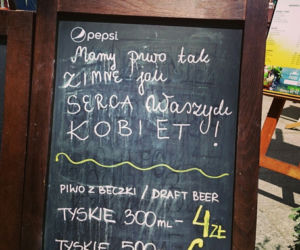 pepsi
Mamy piwo tak
ZIMNE jak
SERCA Waszych
KOBIET!
PIWO Z BECZKI / DRAFT BEER
TYSKIE 300ML - 4 ZŁ
TYSKIE 500